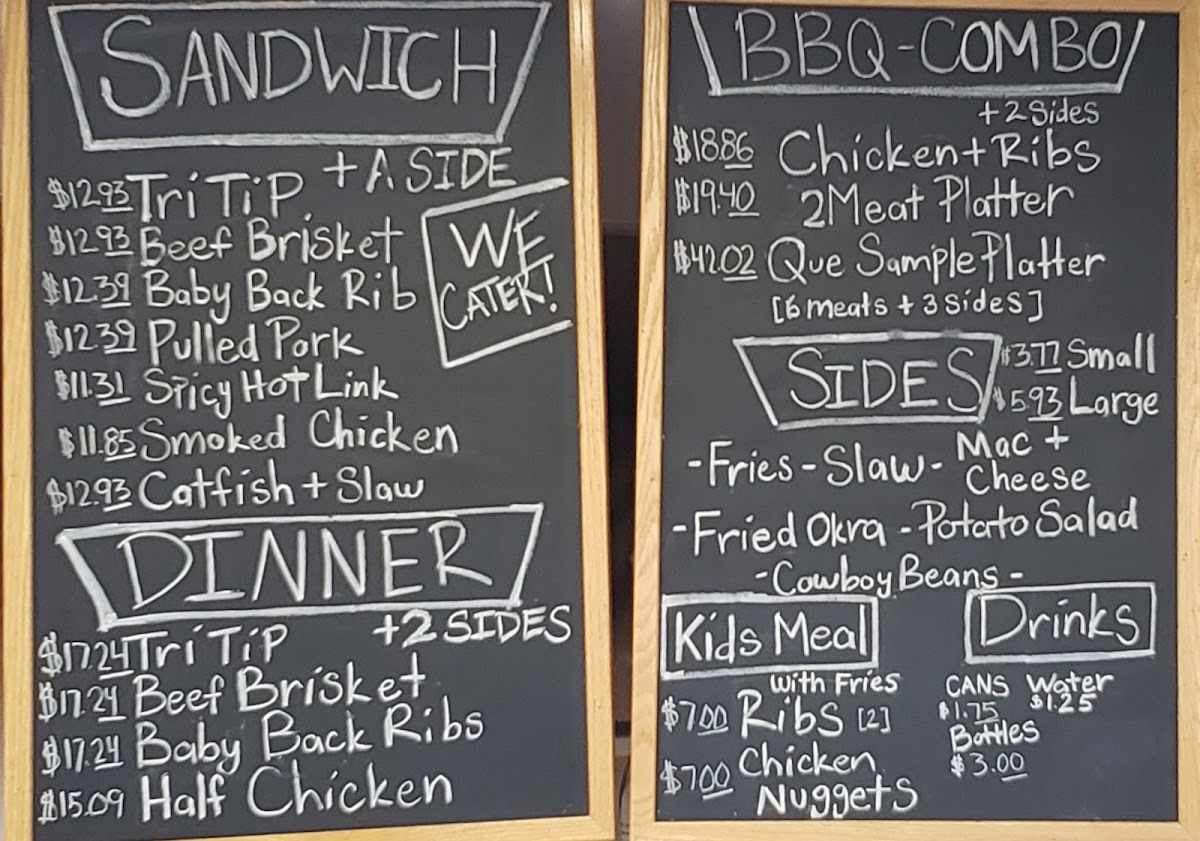 SANDWICH
+ A SIDE
$12.93 Tri Tip
$12.93 Beef Brisket
$12.39 Baby Back Rib
$12.39 Pulled Pork
$11.31 Spicy Hot Link
$11.85 Smoked Chicken
$12.93 Catfish + Slaw
WE
CATER!
DINNER
+2 SIDES
$17.24 Tri Tip
$17.24 Beef Brisket
$17.24 Baby Back Ribs
$15.09 Half Chicken
BBQ-COMBO
+2 Sides
$18.86 Chicken + Ribs
$19.40 2 Meat Platter
$42.02 Que Sample Platter
[6 meats + 3 sides]
SIDES
$3.77 Small
$5.93 Large
-Fries - Slaw - Mac +
Cheese
-Fried Okra - Potato Salad
-Cowboy Beans -
Kids Meal
with Fries
$7.00 Ribs [2]
$7.00 Chicken
Nuggets
Drinks
CANS Water
$1.75 $1.25
Bottles
$3.00